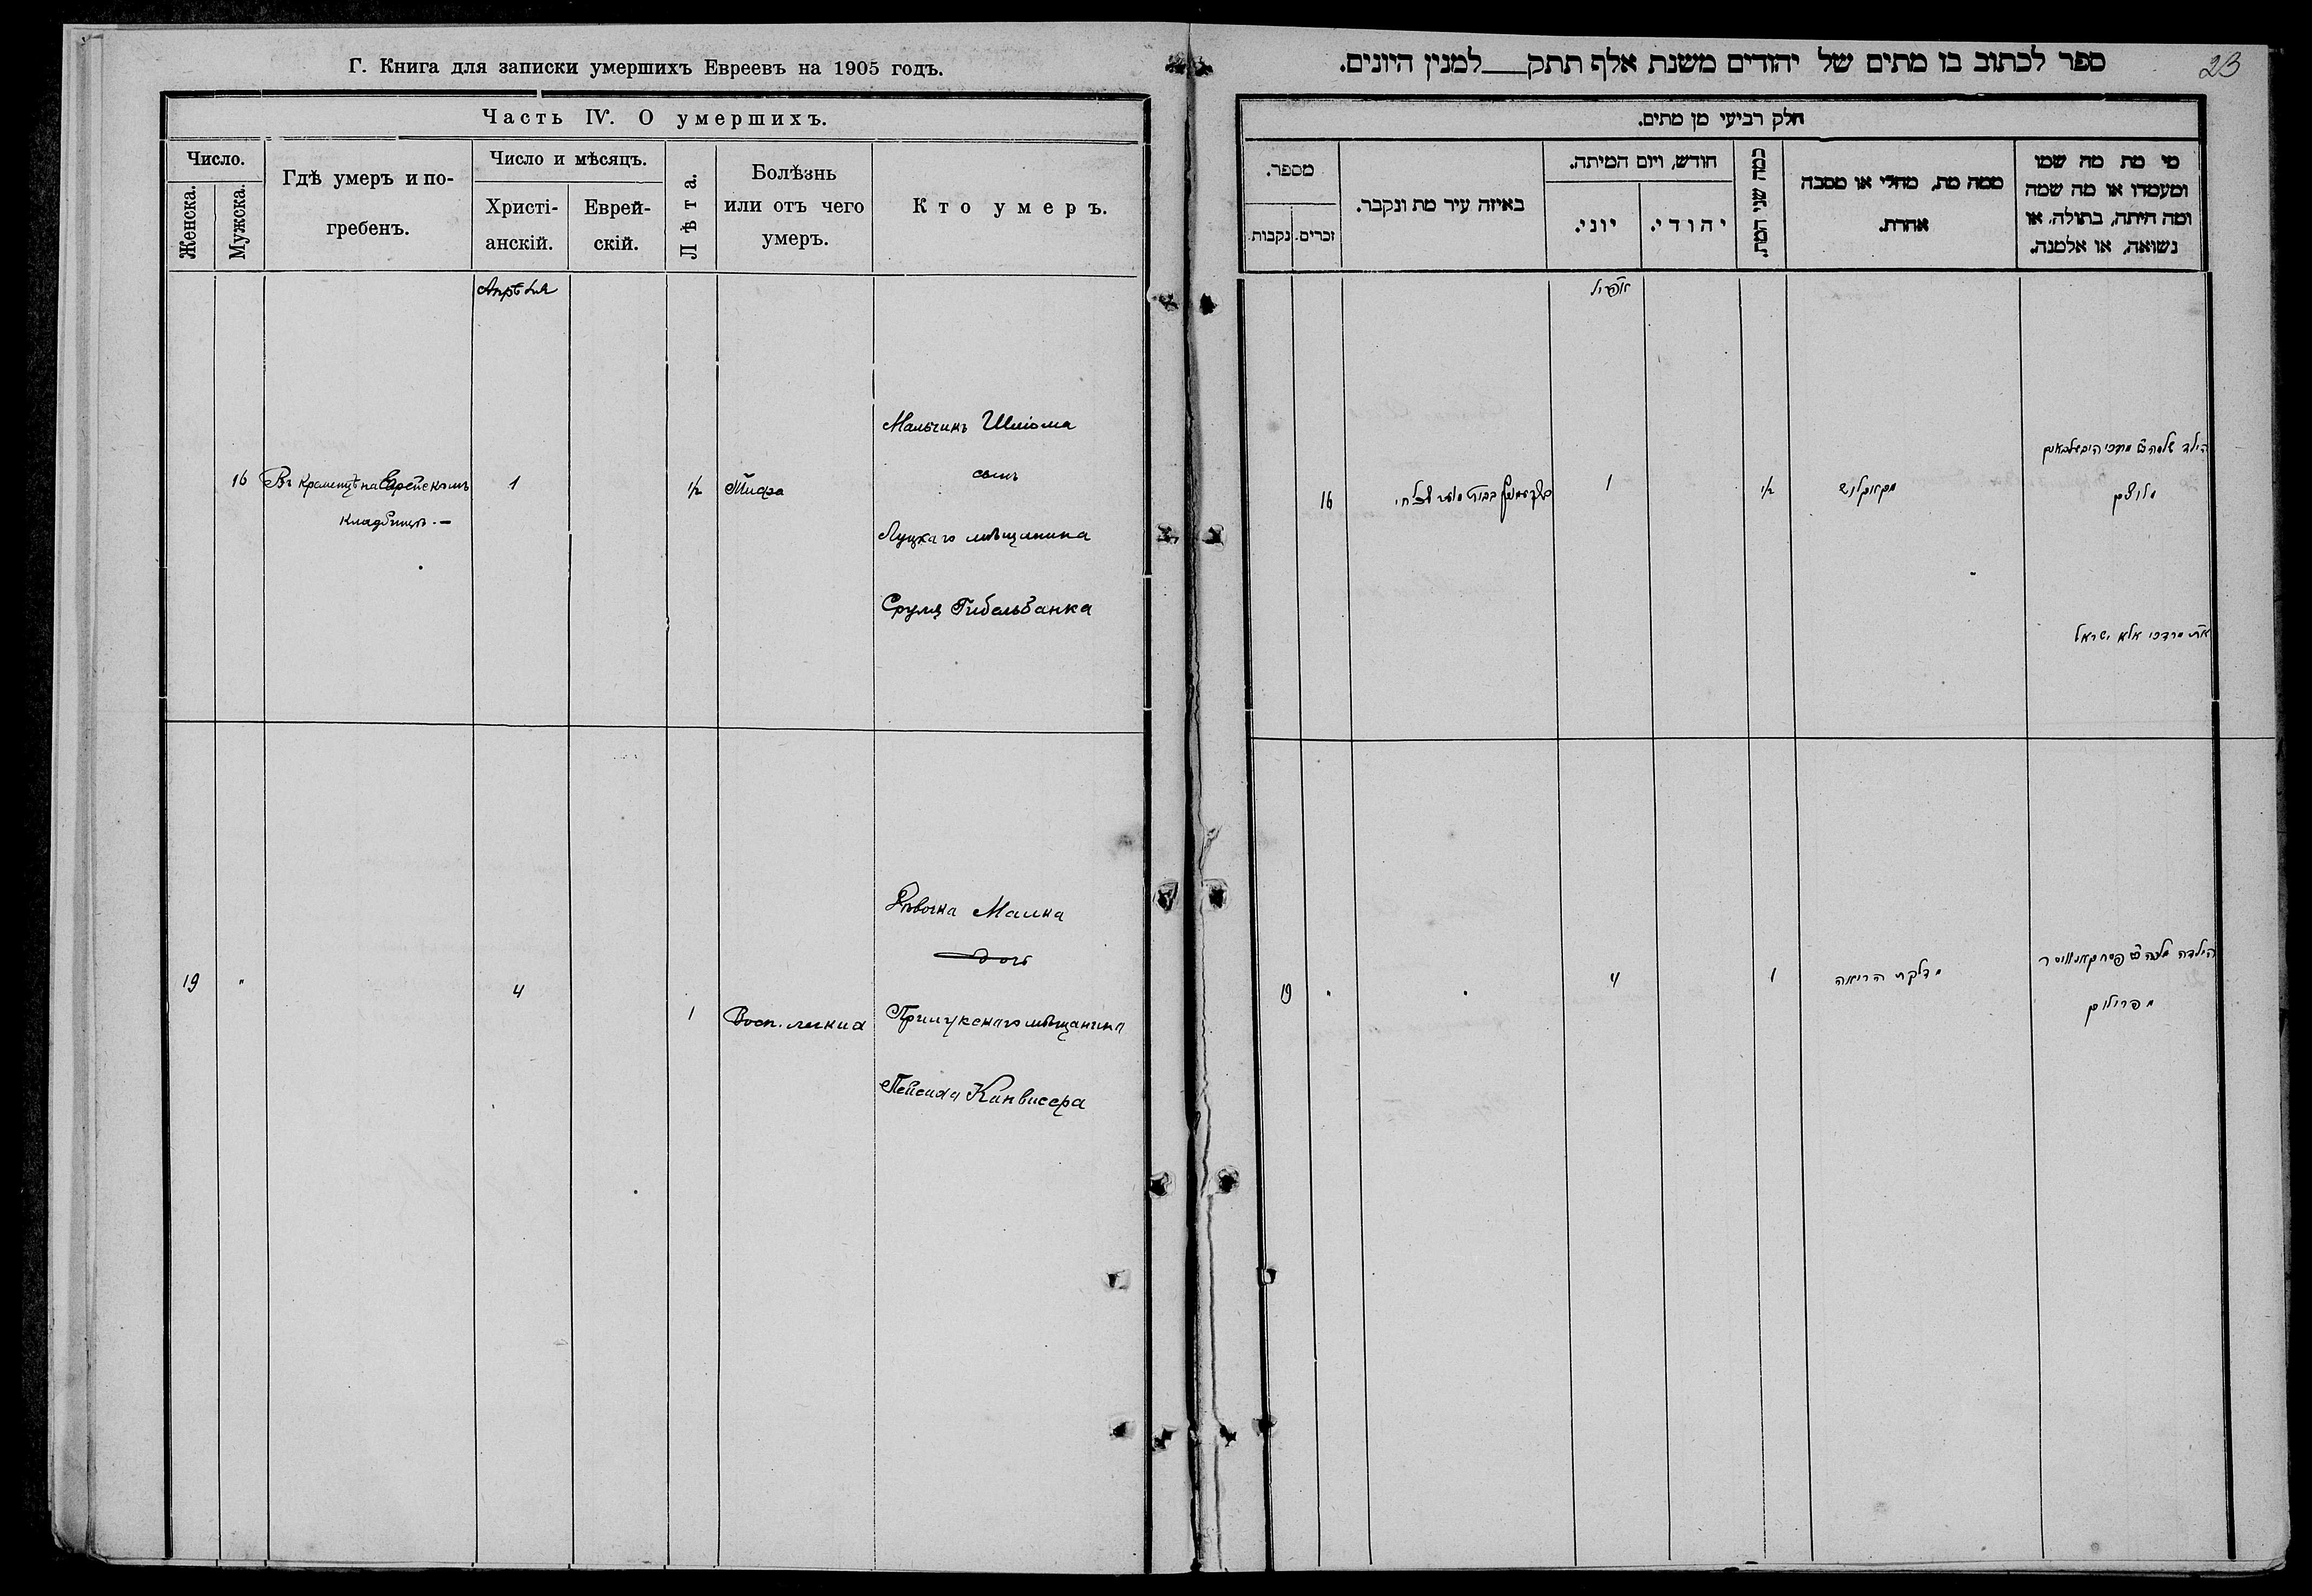 Г. Книга для записки умершихъ Евреевъ на 1905 годъ.
Часть IV. О умершихъ.
Число.
Женска.
Мужска.
Гдѣ умеръ и по-
гребенъ.
Число и мѣсяцъ.
Христі-
анскій.
Еврей-
скій.
Лѣта.
Болѣзнь
или отъ чего
умеръ.
Кто умеръ.
Апрѣля
16
Въ Кременцѣ на Еврейскомъ
кладбищѣ.—
1
1/2
Тифа
Мальчикъ Шліома
сынъ
Луцкаго мѣщанина
Срула Гибельбанка
19
"
4
1
Восп. легкихъ
Дѣвочка Малка
дочь
мѣщанина
Пейсаха Канвисера
23
ספר לכתוב בו מתים של יהודים משנת אלף תתק___למנין היונים.
חלק רביעי מן מתים.
מספר.
נקבות.
זכרים.
באיזה עיר מת ונקבר.
חודש, ויום המיתה.
יוני.
יהודי.
כמה שני המת.
ממה מת, מחלי או מסבה
אחרת.
מי מת מה שמו
ומעמדו או מה שמה
ומה היתה, בתולה, או
נשואה, או אלמנה.
אפריל
16
1
1/2
הילד
מלוצק
מרדכי אלא ישראל
19
"
"
4
1
דלקת הריאה
הילדה מלכה פסח קאנוויסר